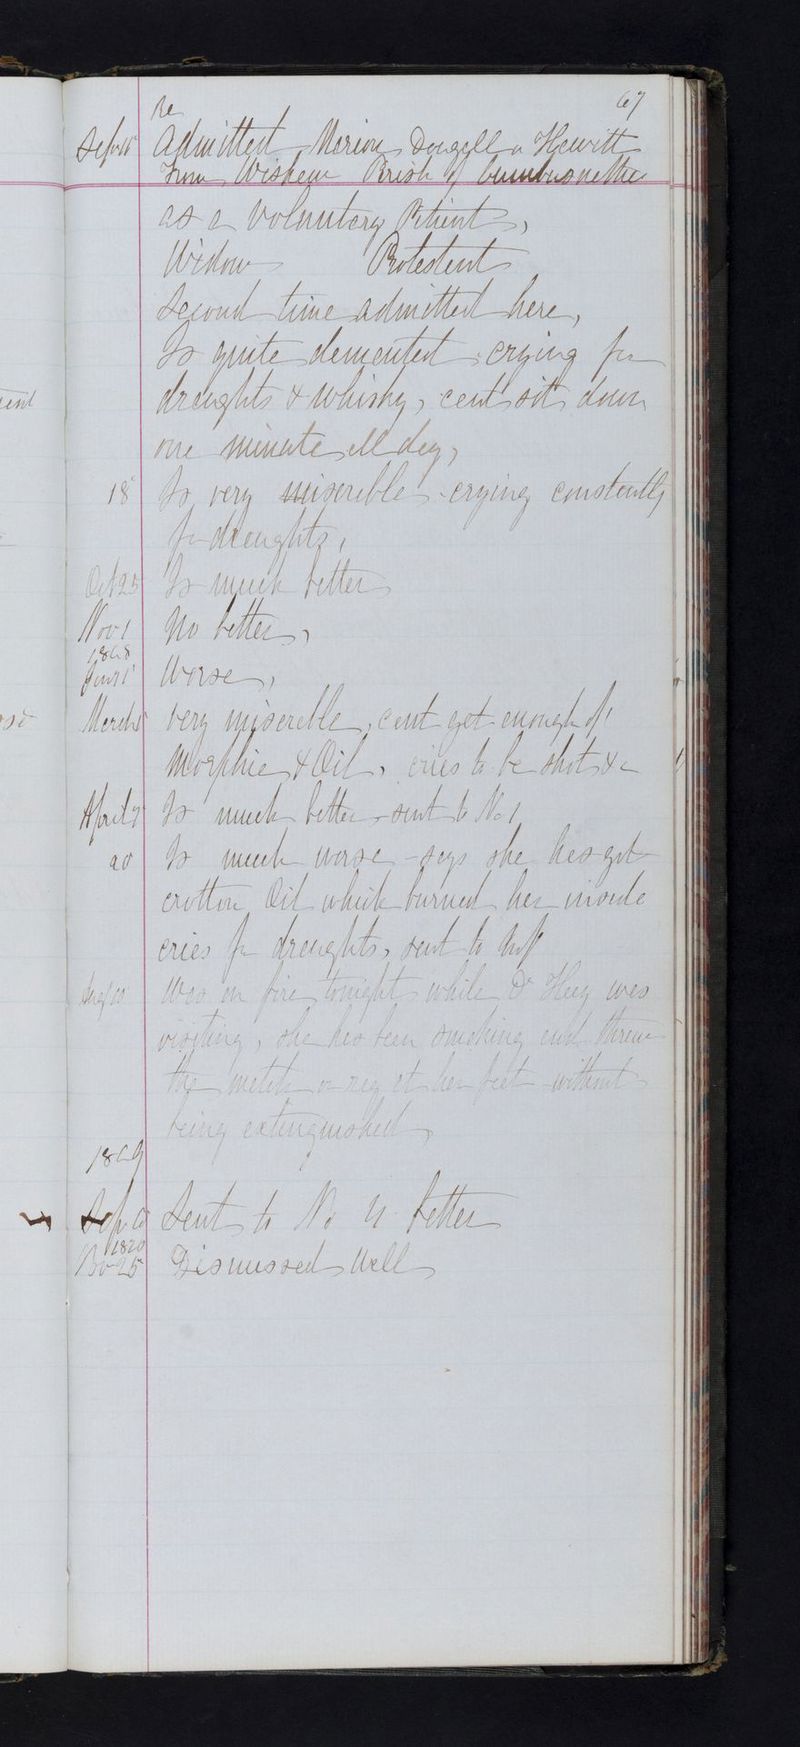 67
Re
Sepr 15 Admitted Marion Dougall or Hewitt
From Wishaw Parish of Cambusnethan
as a voluntary Patient,
Widow Protestant
Second time admitted here,
Is quite demented, crying for
draughts & whisky, cant sit down
one minute all day,
18 Is very miserable - crying constantly
for draughts,
Oct 25 Is much better
Nov 1 No better,
1868
Jany 1 Worse,
March very miserable, cant get enough of
Morphia & Oil, cries to be shot &c
April Is much better - sent to No 1
20 Is much worse - says she has got
crotton Oil which burned her inside
cries for draughts, sent to
Augt Was on fire tonight while Dr Hay was
visiting, she has been smoking and threw
the match or rag at her feet without
being extinguished,
1869
Sepr Sent to No 4 better
1870
25 Dismissed Well